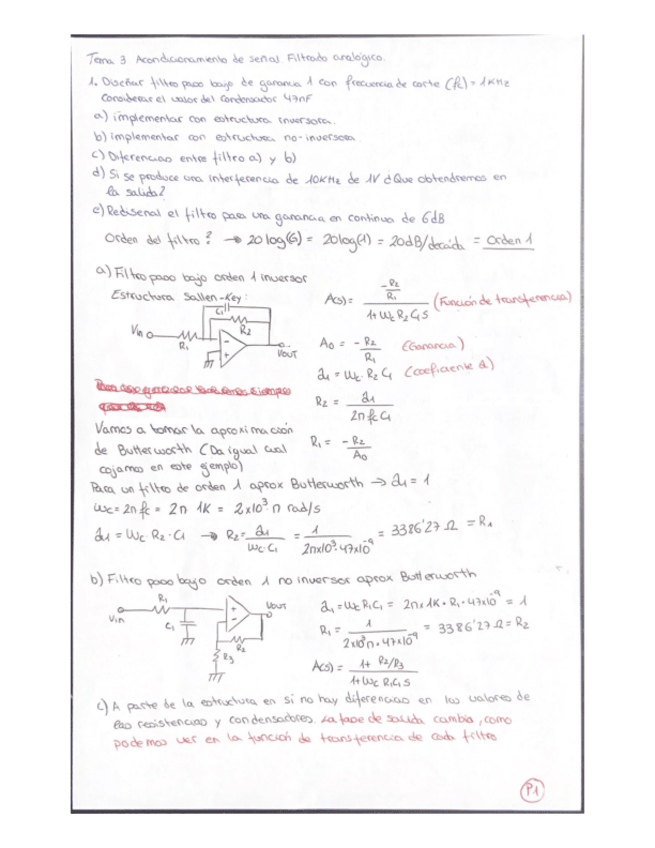 Tema 3 Acondicionamiento de señal. Filtrado analógico.
1. Diseñar filtro paso bajo de ganancia 1 con frecuencia de corte (fc) = 1KHz
Considerar el valor del condensador 47nF
a) implementar con estructura inversora.
b) implementar con estructura no-inversora
c) Diferencias entre filtro a) y b)
d) Si se produce una interferencia de 10KHz de 1V ¿Que obtendremos en
la salida?
e) Rediseñal el filtro para una ganancia en continua de 6dB
Orden del filtro? → 20log(G) = 20log(1) = 20dB/decada = Orden 1
a) Filtro paso bajo orden 1 inversor
Estructura Sallen-Key:
C1
R2
Vin
R1
Vout
A(s) = (-R2/R1) / (1 + Wc R2 C1 S) (Función de transferencia)
A0 = -R2/R1 (Ganancia)
a1 = Wc · R2 C1 (coeficiente a)
R2 = a1 / 2π fc C1
R1 = -R2/A0
Vamos a tomar la aproximación
de Butterworth (Da igual cual
cojamos en este ejemplo)
Para un filtro de orden 1 aprox Butterworth → a1 = 1
Wc = 2π fc = 2π 1K = 2x10³ π rad/s
a1 = Wc · R2 · C1 → R2 = a1/(Wc · C1) = 1/(2πx10³ · 47x10⁻⁹) = 3386'27 Ω = R1
b) Filtro paso bajo orden 1 no inversor aprox Butterworth
Vin
R1
C1
Vout
R2
R3
a1 = Wc R1 C1 = 2π x 1K · R1 · 47x10⁻⁹ = 1
R1 = 1/(2x10³π · 47x10⁻⁹) = 3386'27 Ω = R2
A(s) = (1 + R2/R3) / (1 + Wc R1 C1 S)
c) A parte de la estructura en si no hay diferencias en los valores de
las resistencias y condensadores. La fase de salida cambia, como
podemos ver en la función de transferencia de cada filtro
P1